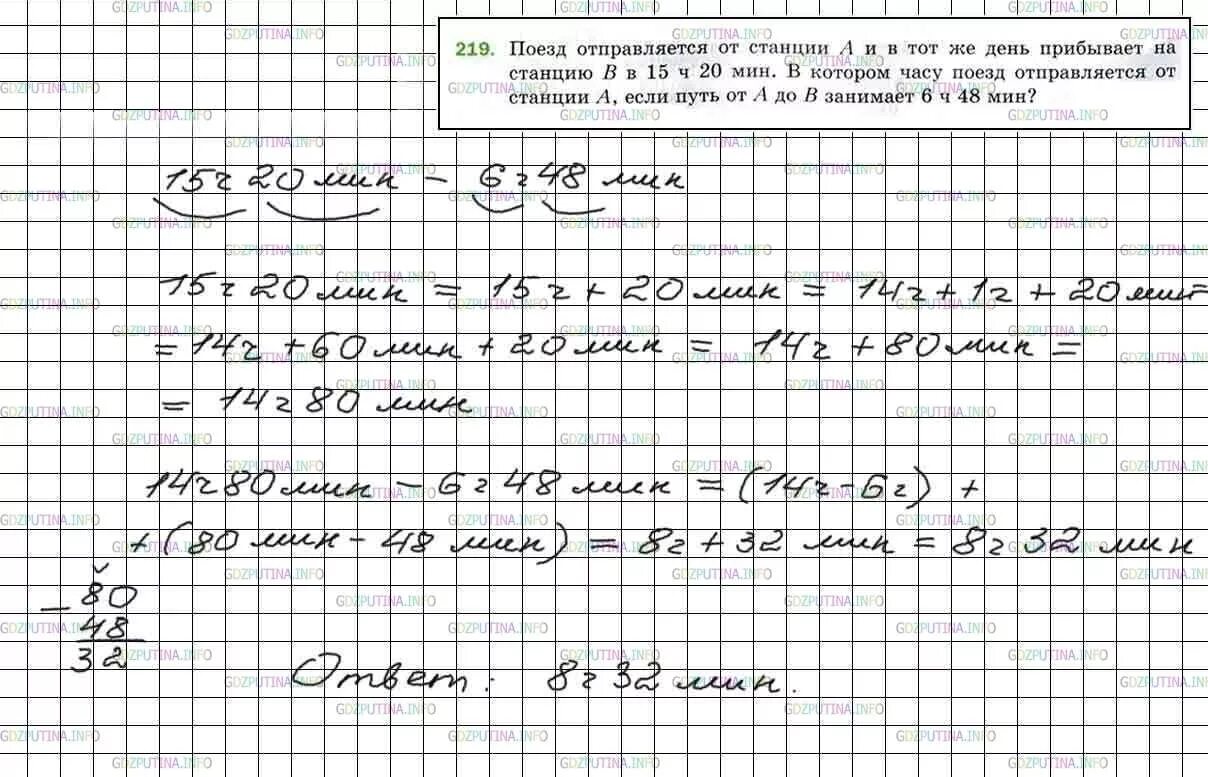 219. Поезд отправляется от станции A и в тот же день прибывает на
станцию B в 15 ч 20 мин. В котором часу поезд отправляется от
станции A, если путь от A до B занимает 6 ч 48 мин?
15ч 20 мин – 6ч 48 мин
15ч 20 мин = 15ч + 20 мин = 14ч + 1ч + 20 мин
= 14ч + 60 мин + 20 мин = 14ч + 80 мин =
= 14ч 80 мин
14ч 80 мин – 6ч 48 мин = (14ч – 6ч) +
+ (80 мин – 48 мин) = 8ч + 32 мин = 8ч 32 мин
– 80
48
32
Ответ: 8ч 32 мин.
GDZPUTINA.INFO